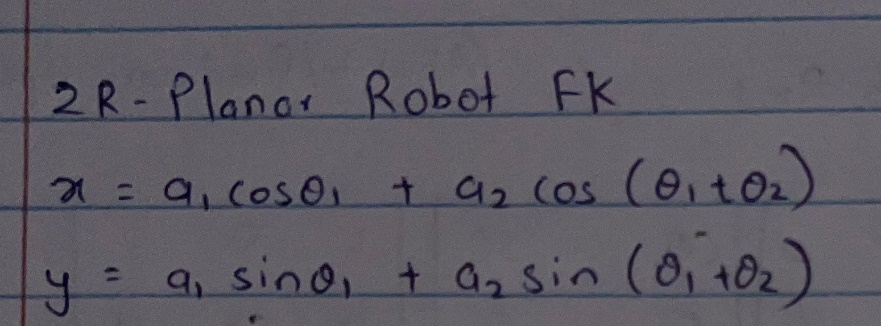 2R-Planar Robot FK
x = a₁ cosθ₁ + a₂ cos (θ₁+θ₂)
y = a₁ sinθ₁ + a₂ sin (θ₁+θ₂)